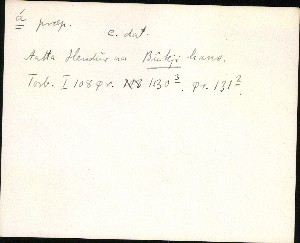 á præp.
c. dat.
Aatta Hendur aa Búkji hans.
Torb. I 108 gr. 130³. gr. 131²